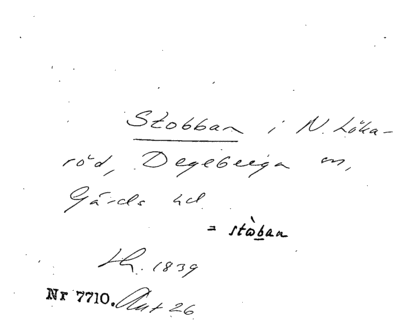 Stobban i N. Löka-
röd, Degeberga sn,
Gärds hd
= stòban
Lh. 1839
Nr 7710. Ant 26